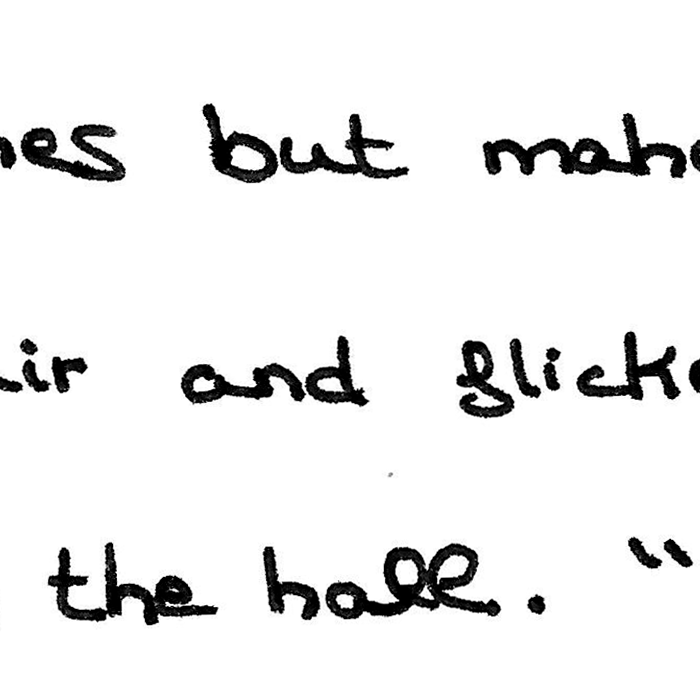 nes but make
air and flicke
the hall. "